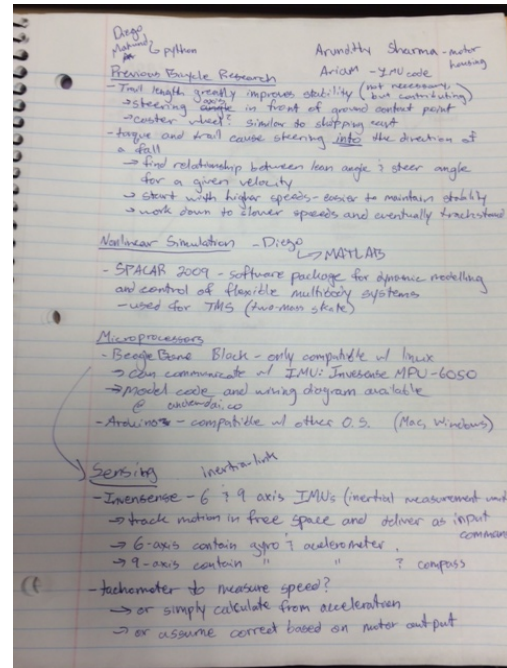 Diego
python
Arundithy Sharma - motor housing
Ariam - IMU code
Previous Bicycle Research
- Trail length greatly improves stability (not necessary, but contributing)
→ steering axis in front of ground contact point
→ caster wheel? similar to shopping cart
- torque and trail cause steering into the direction of
a fall
→ find relationship between lean angle & steer angle
for a given velocity
→ start with higher speeds - easier to maintain stability
→ work down to slower speeds and eventually trackstand
Nonlinear Simulation - Diego
↳ MATLAB
- SPACAR 2009 - software package for dynamic modelling
and control of flexible multibody systems
- used for TMS (two-mass skate)
Microprocessors
- Beagle Bone Black - only compatible w/ linux
→ can communicate w/ IMU: Invensense MPU-6050
→ model code and wiring diagram available
@
- Arduino - compatible w/ other O.S. (Mac, Windows)
Sensing
inertial link
- Invensense - 6 & 9 axis IMUs (inertial measurement unit
→ track motion in free space and deliver as input
command
→ 6-axis contain gyro & accelerometer
→ 9-axis contain " " & compass
- tachometer to measure speed?
→ or simply calculate from acceleration
→ or assume correct based on motor output